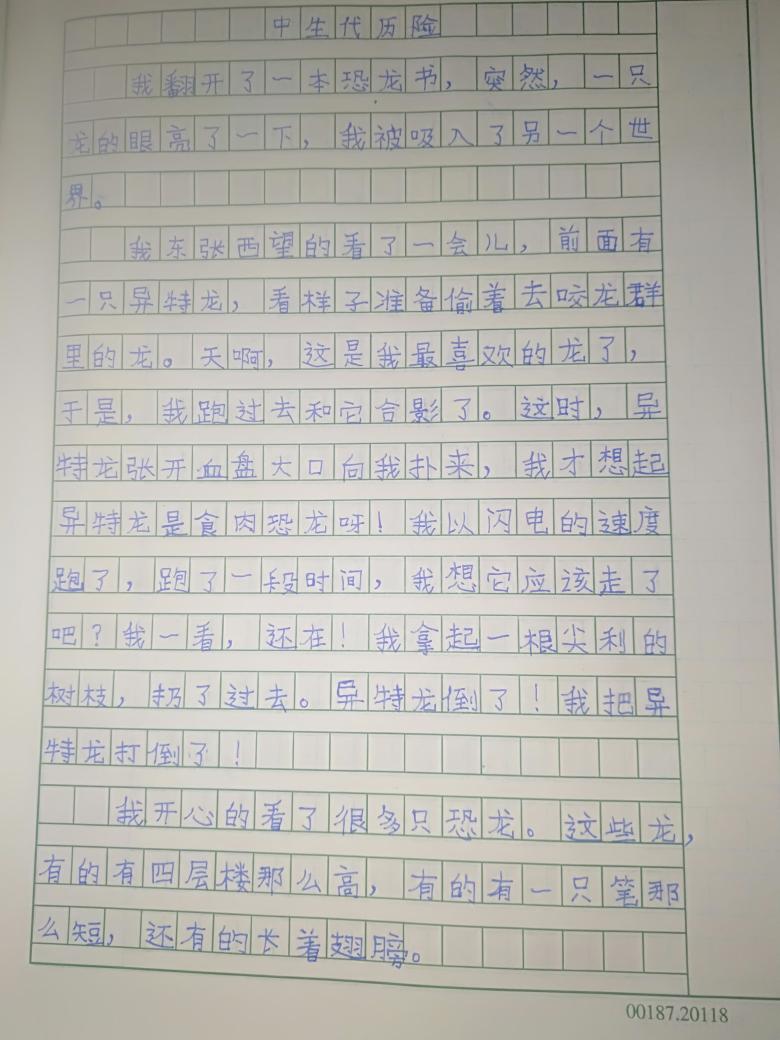 中生代历险
我翻开了一本恐龙书，突然，一只
龙的眼亮了一下，我被吸入了另一个世
界。
我东张西望的看了一会儿，前面有
一只异特龙，看样子准备偷着去咬龙群
里的龙。天啊，这是我最喜欢的龙了，
于是，我跑过去和它合影了。这时，异
特龙张开血盘大口向我扑来，我才想起
异特龙是食肉恐龙呀！我以闪电的速度
跑了，跑了一段时间，我想它应该走了
吧？我一看，还在！我拿起一根尖利的
树枝，扔了过去。异特龙倒了！我把异
特龙打倒了！
我开心的看了很多只恐龙。这些龙，
有的有四层楼那么高，有的有一只笔那
么短，还有的长着翅膀。
00187.20118